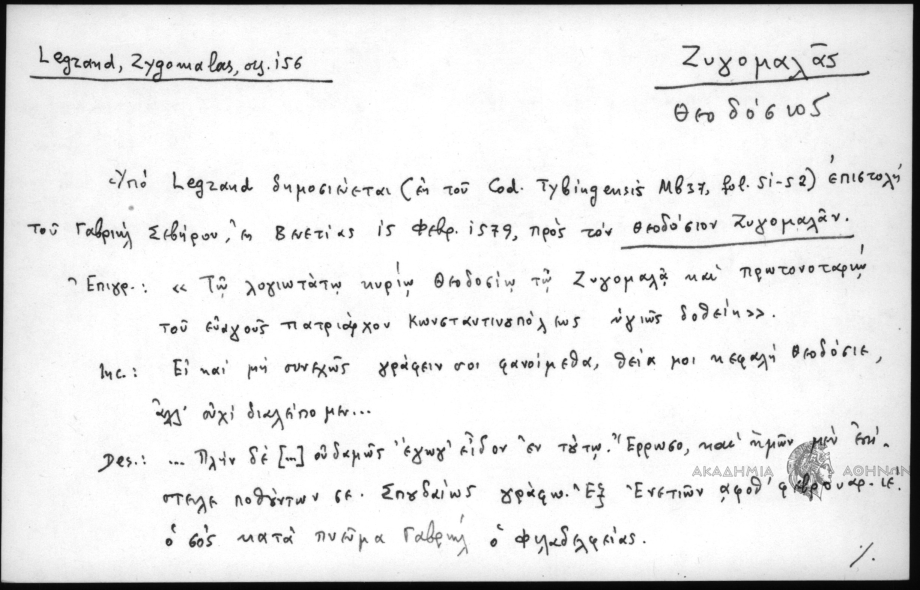 Legrand, Zygomalas, σελ. 156
Ζυγομαλᾶς
Θεοδόσιος
Ὑπό Legrand δημοσιεύεται (ἐκ τοῦ Cod. Tybingensis Mb37, fol. 51-52) ἐπιστολή
τοῦ Γαβριήλ Σεβήρου, ἐκ Βενετίας 15 Φεβρ. 1579, πρὸς τὸν Θεοδόσιον Ζυγομαλᾶν.
Ἐπιγρ.: «Τῷ λογιωτάτῳ κυρίῳ Θεοδοσίῳ τῷ Ζυγομαλᾷ καί πρωτονοταρίῳ
τοῦ εὐαγοῦς πατριάρχου Κωνσταντινουπόλεως ὑγιῶς δοθείη».
Inc.: Εἰ καί μή συνεχῶς γράφειν σοι φανοίμεθα, θεία μοι κεφαλή Θεοδόσιε,
ἀλλ' οὐχί διαλείπομεν...
Des.: ... Πλήν δέ [...] οὐδαμῶς ἔγωγ' εἶδον ἐν τούτῳ. Ἔρρωσο, καί ἡμῶν μέν ἐπί-
στελλε ποθούντων σε. Σπουδαίως γράφω. Ἐξ Ἐνετιῶν ͵αφοθ' φεβρουαρ. ιε'.
ὁ σός κατά πνεῦμα Γαβριήλ ὁ Φιλαδελφείας.
ΑΚΑΔΗΜΙΑ ΑΘΗΝΩΝ
./.